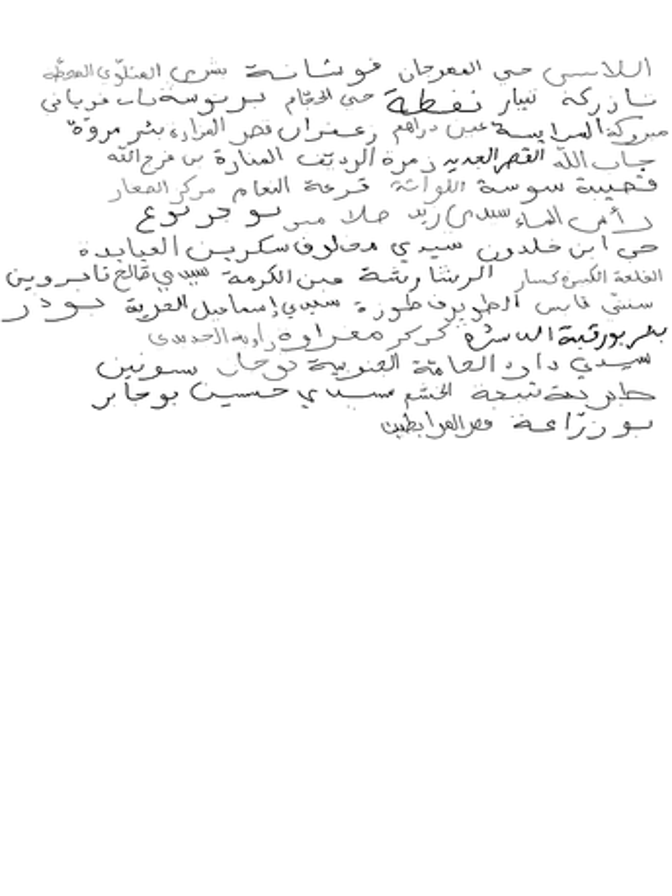 اللاسى حي المهرجان فوشانة بشري المتلوي المحطة
تازركة نيبار نفطة حي الحجام برنوسة باب فرياني
مبروكة المرايسة عين دراهم زعفران قصر المزار بئر مروة
جاب الله القصر الجديد زمرة الرديف المنارة بن فرج الله
قصيبة سوسة اللواتة قرعة النعام مركز المعار
رأس الماء سيدي زيد جلامس بوجربوع
حي ابن خلدون سيدي مخلوف سكرين العبايدة
القلعة الكبيرة كسار الرشارشة عين الكرمة سيدي صالح تافروين
سبتي قابس الطويرف طوزة سيدي إسماعيل العربة بودر
بئر بورقبة الباشرة كركر مغراوة زاوية الجديدي
سيدي داود الحامة الجنوبية توجان سونين
طابريت تبعة الخشم سيدي حسين بوجابر
بوزراعة قصر المرابطين